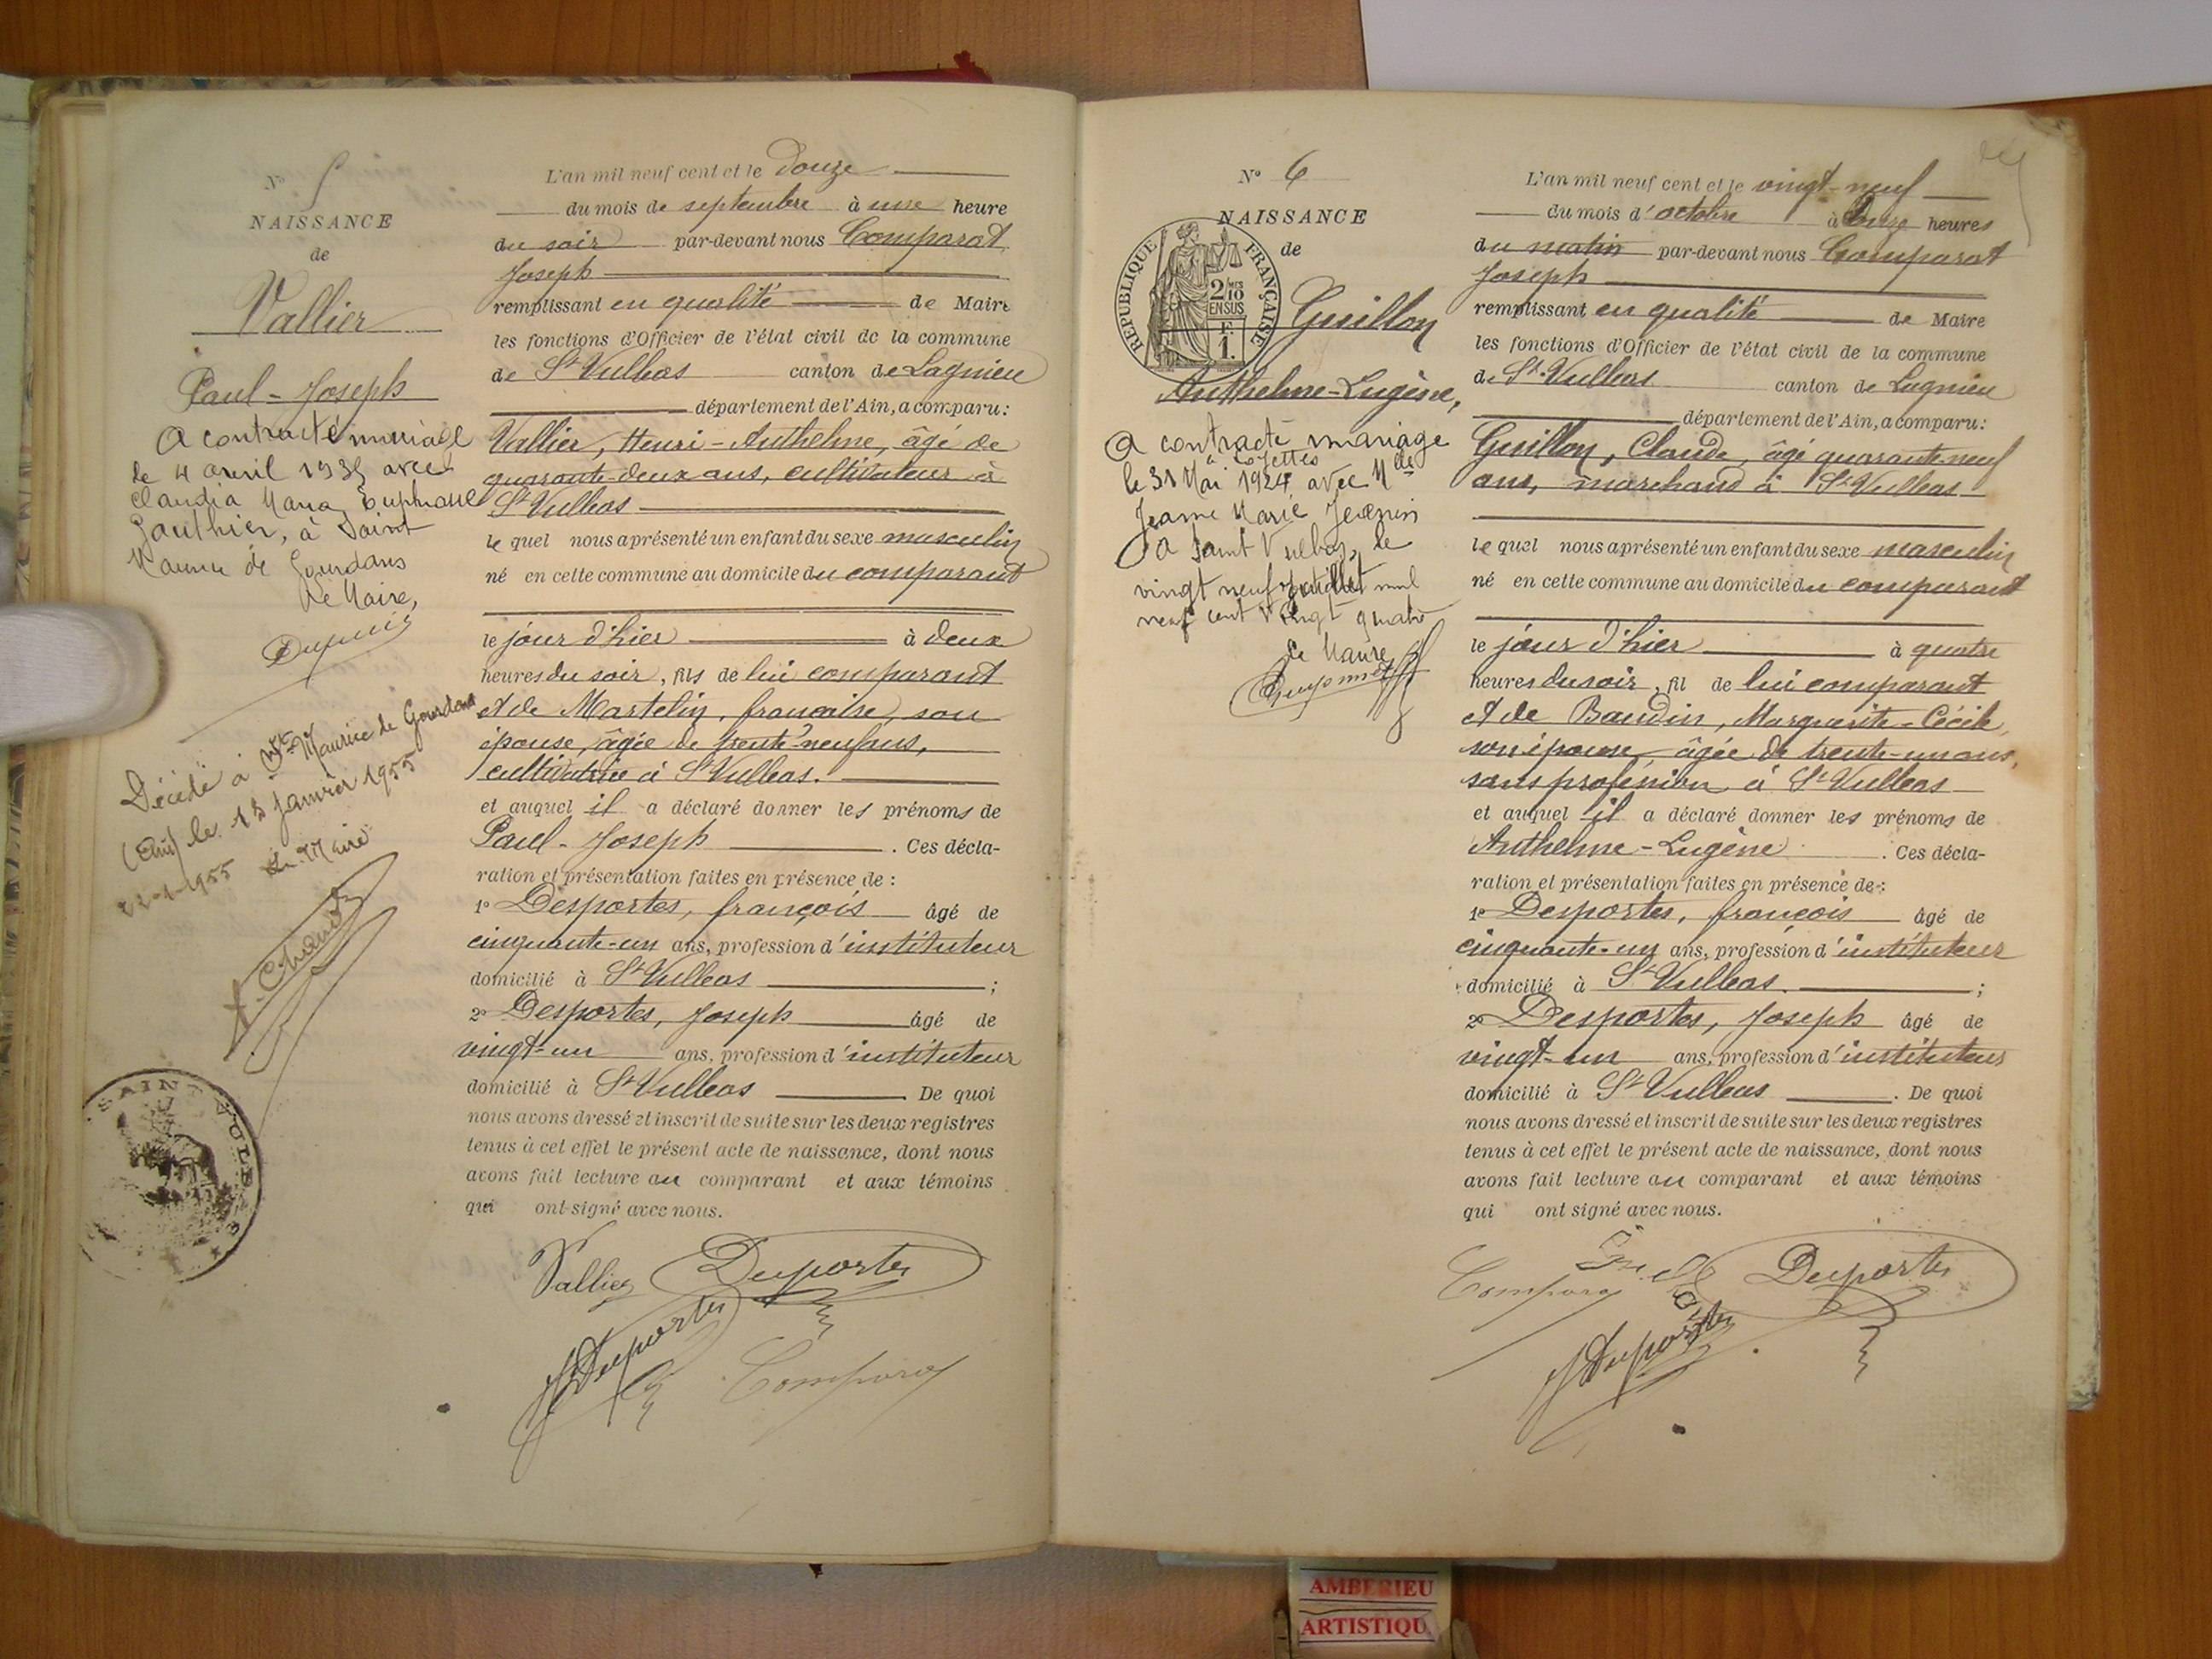 Nº 5
NAISSANCE
de
Vallier
Paul-Joseph
A contracté mariage
le 4 avril 1935 avec
Claudia Maria Euphrasie
Gauthier, à Saint
Maurice de Gourdans
Le Maire,
Dupuis
Décédé à St Maurice de Gourdans
(Ain) le 18 janvier 1955
22-1-1955 Le Maire
SAINT VULB
L'an mil neuf cent et le Douze
du mois de septembre à une heure
du soir par-devant nous Comparat
Joseph
remplissant en qualité de Maire
les fonctions d'Officier de l'état civil de la commune
de St Vulbas canton de Lagnieu
département de l'Ain, a comparu:
Vallier, Henri-Anthelme, âgé de
quarante-deux ans, cultivateur à
St Vulbas
lequel nous a présenté un enfant du sexe masculin
né en cette commune au domicile du comparant
le jour d'hier à deux
heures du soir, fils de lui comparant
et de Martelin, française, son
épouse, âgée de trente-neuf ans,
cultivatrice à St Vulbas.
et auquel il a déclaré donner les prénoms de
Paul-Joseph. Ces décla-
ration et présentation faites en présence de:
1º Desportes, françois âgé de
cinquante-un ans, profession d'instituteur
domicilié à St Vulbas;
2º Desportes, Joseph âgé de
vingt-un ans, profession d'instituteur
domicilié à St Vulbas. De quoi
nous avons dressé et inscrit de suite sur les deux registres
tenus à cet effet le présent acte de naissance, dont nous
avons fait lecture au comparant et aux témoins
qui ont signé avec nous.
Vallier Desportes
J Desportes Comparat
Nº 6
NAISSANCE
de
REPUBLIQUE FRANÇAISE
2/10 MES
EN SUS
F.
1.
Guillon
Anthelme-Eugène,
A contracté mariage
à Loyettes
le 31 Mai 1924 avec Mlle
Jeanne Marie Jeannin
A Saint Vulbas, le
vingt neuf juillet mil
neuf cent vingt quatre
Le Maire
L'an mil neuf cent et le vingt-neuf
du mois d'octobre à onze heures
du matin par-devant nous Comparat
Joseph
remplissant en qualité de Maire
les fonctions d'Officier de l'état civil de la commune
de St Vulbas canton de Lagnieu
département de l'Ain, a comparu:
Guillon, Claude, âgé quarante-neuf
ans, marchand à St Vulbas
lequel nous a présenté un enfant du sexe masculin
né en cette commune au domicile du comparant
le jour d'hier à quatre
heures du soir, fil de lui comparant
et de Baudin, Marguerite-Cécile,
son épouse, âgée de trente-un ans,
sans profession à St Vulbas
et auquel il a déclaré donner les prénoms de
Anthelme-Eugène. Ces décla-
ration et présentation faites en présence de:
1º Desportes, françois âgé de
cinquante-un ans, profession d'instituteur
domicilié à St Vulbas.;
2º Desportes, Joseph âgé de
vingt-un ans, profession d'instituteur
domicilié à St Vulbas. De quoi
nous avons dressé et inscrit de suite sur les deux registres
tenus à cet effet le présent acte de naissance, dont nous
avons fait lecture au comparant et aux témoins
qui ont signé avec nous.
Comparat Guillon Desportes
J Desportes
AMBERIEU
ARTISTIQU